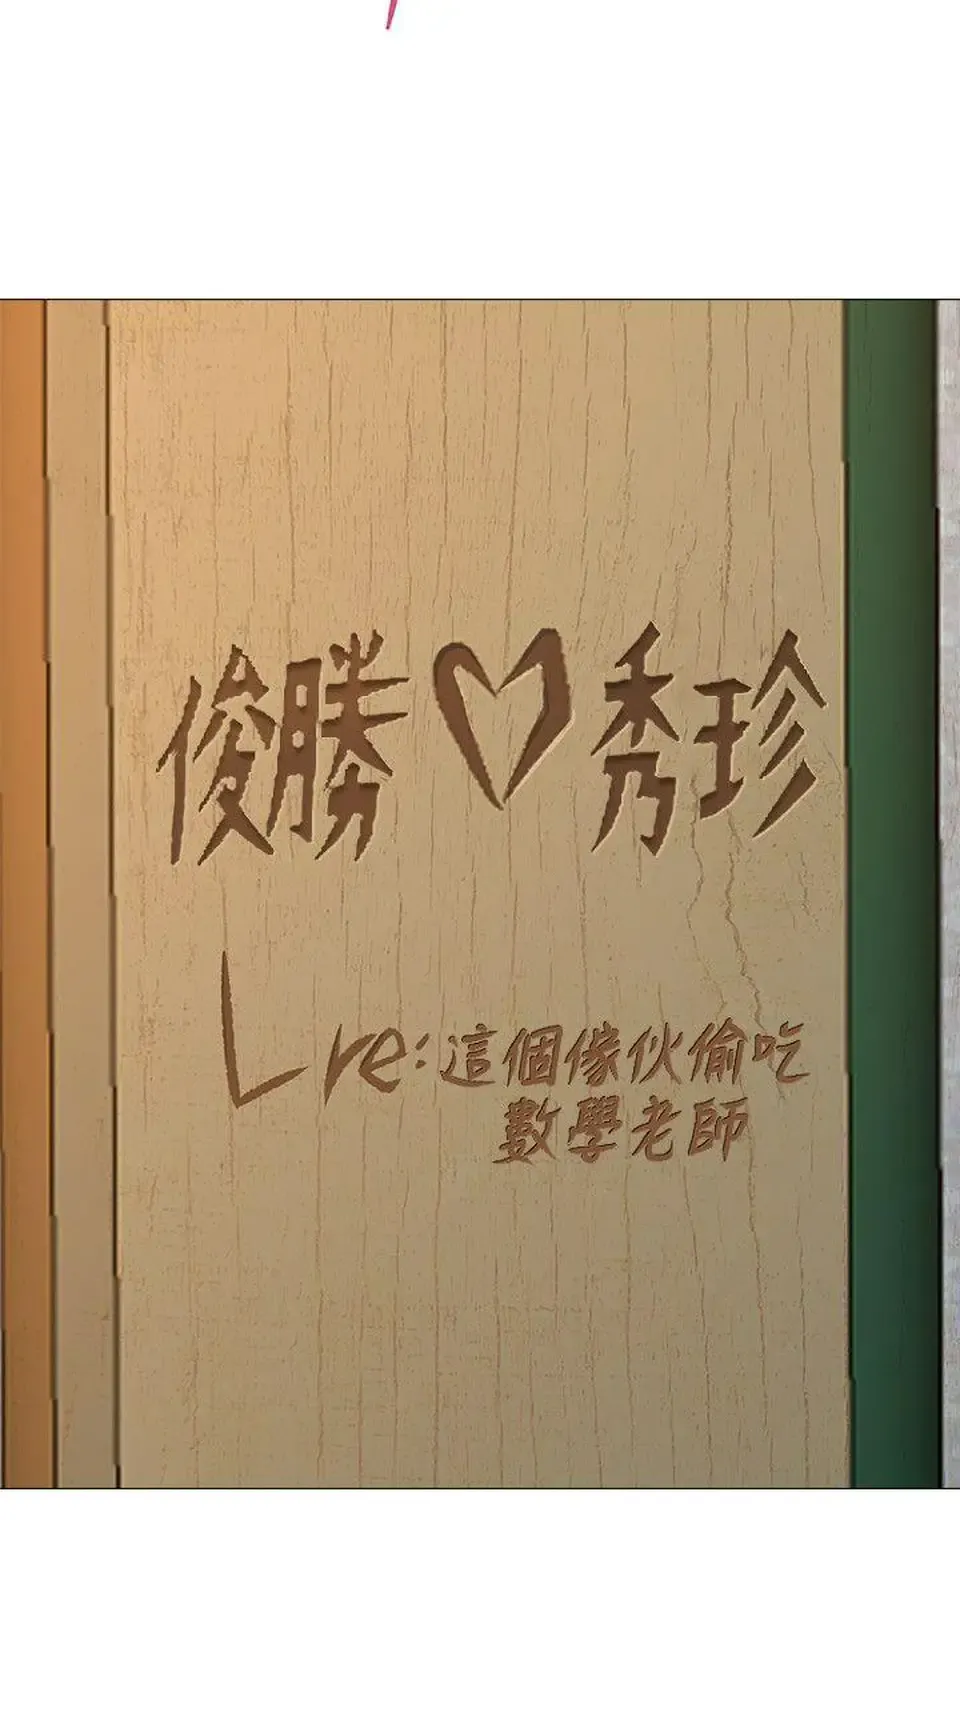 俊勝♡秀珍
L re:這個傢伙偷吃
數學老師